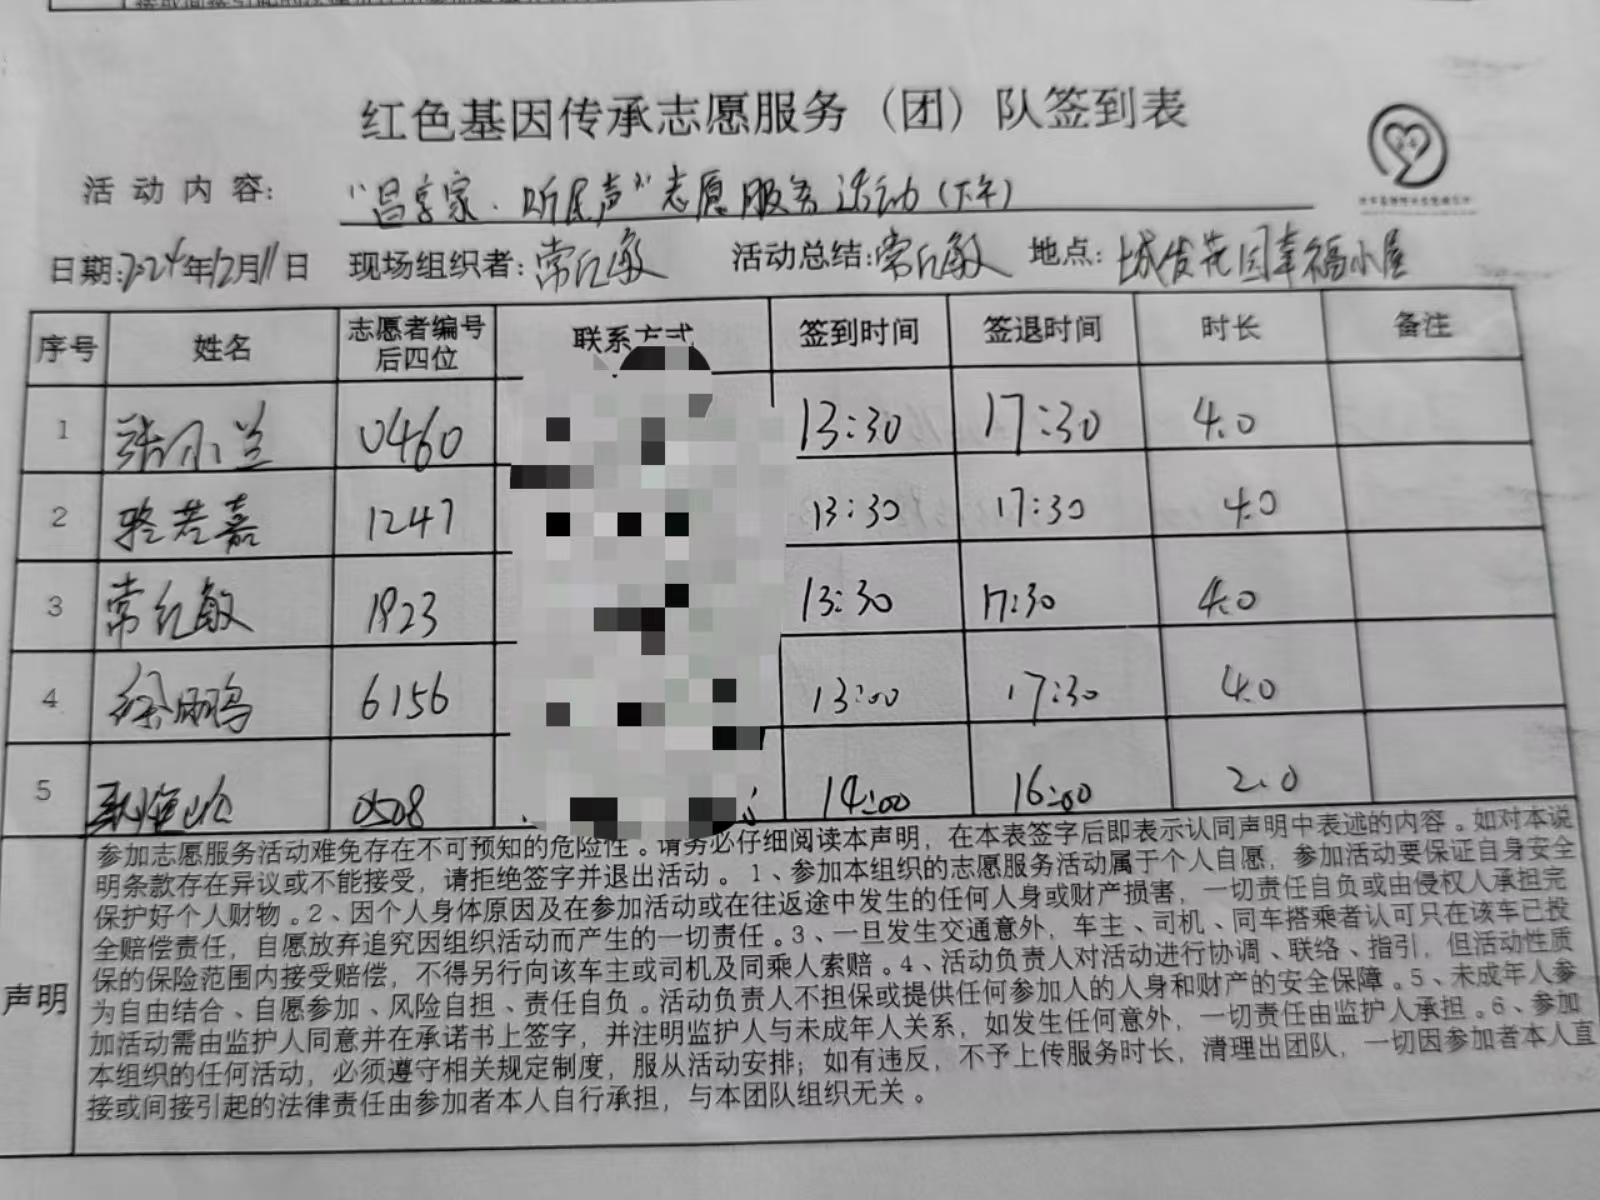 红色基因传承志愿服务（团）队签到表
活动内容: “昌享家·听民声”志愿服务活动(下午)
日期:2024年12月11日 现场组织者:常红敏 活动总结:常红敏 地点:城发花园幸福小屋
序号 姓名 志愿者编号后四位 联系方式 签到时间 签退时间 时长 备注
1 张小兰 0460 13:30 17:30 4.0
2 骆若嘉 1247 13:30 17:30 4.0
3 常红敏 1923 13:30 17:30 4.0
4 徐鹏 6156 13:00 17:30 4.0
5 0508 14:00 16:00 2.0
声明
参加志愿服务活动难免存在不可预知的危险性。请务必仔细阅读本声明，在本表签字后即表示认同声明中表述的内容。如对本说
明条款存在异议或不能接受，请拒绝签字并退出活动。1、参加本组织的志愿服务活动属于个人自愿，参加活动要保证自身安全
保护好个人财物。2、因个人身体原因及在参加活动或在往返途中发生的任何人身或财产损害，一切责任自负或由侵权人承担完
全赔偿责任，自愿放弃追究因组织活动而产生的一切责任。3、一旦发生交通意外，车主、司机、同车搭乘者认可只在该车已投
保的保险范围内接受赔偿，不得另行向该车主或司机及同乘人索赔。4、活动负责人对活动进行协调、联络、指引，但活动性质
为自由结合、自愿参加、风险自担、责任自负。活动负责人不担保或提供任何参加人的人身和财产的安全保障。5、未成年人参
加活动需由监护人同意并在承诺书上签字，并注明监护人与未成年人关系，如发生任何意外，一切责任由监护人承担。6、参加
本组织的任何活动，必须遵守相关规定制度，服从活动安排；如有违反，不予上传服务时长，清理出团队，一切因参加者本人直
接或间接引起的法律责任由参加者本人自行承担，与本团队组织无关。